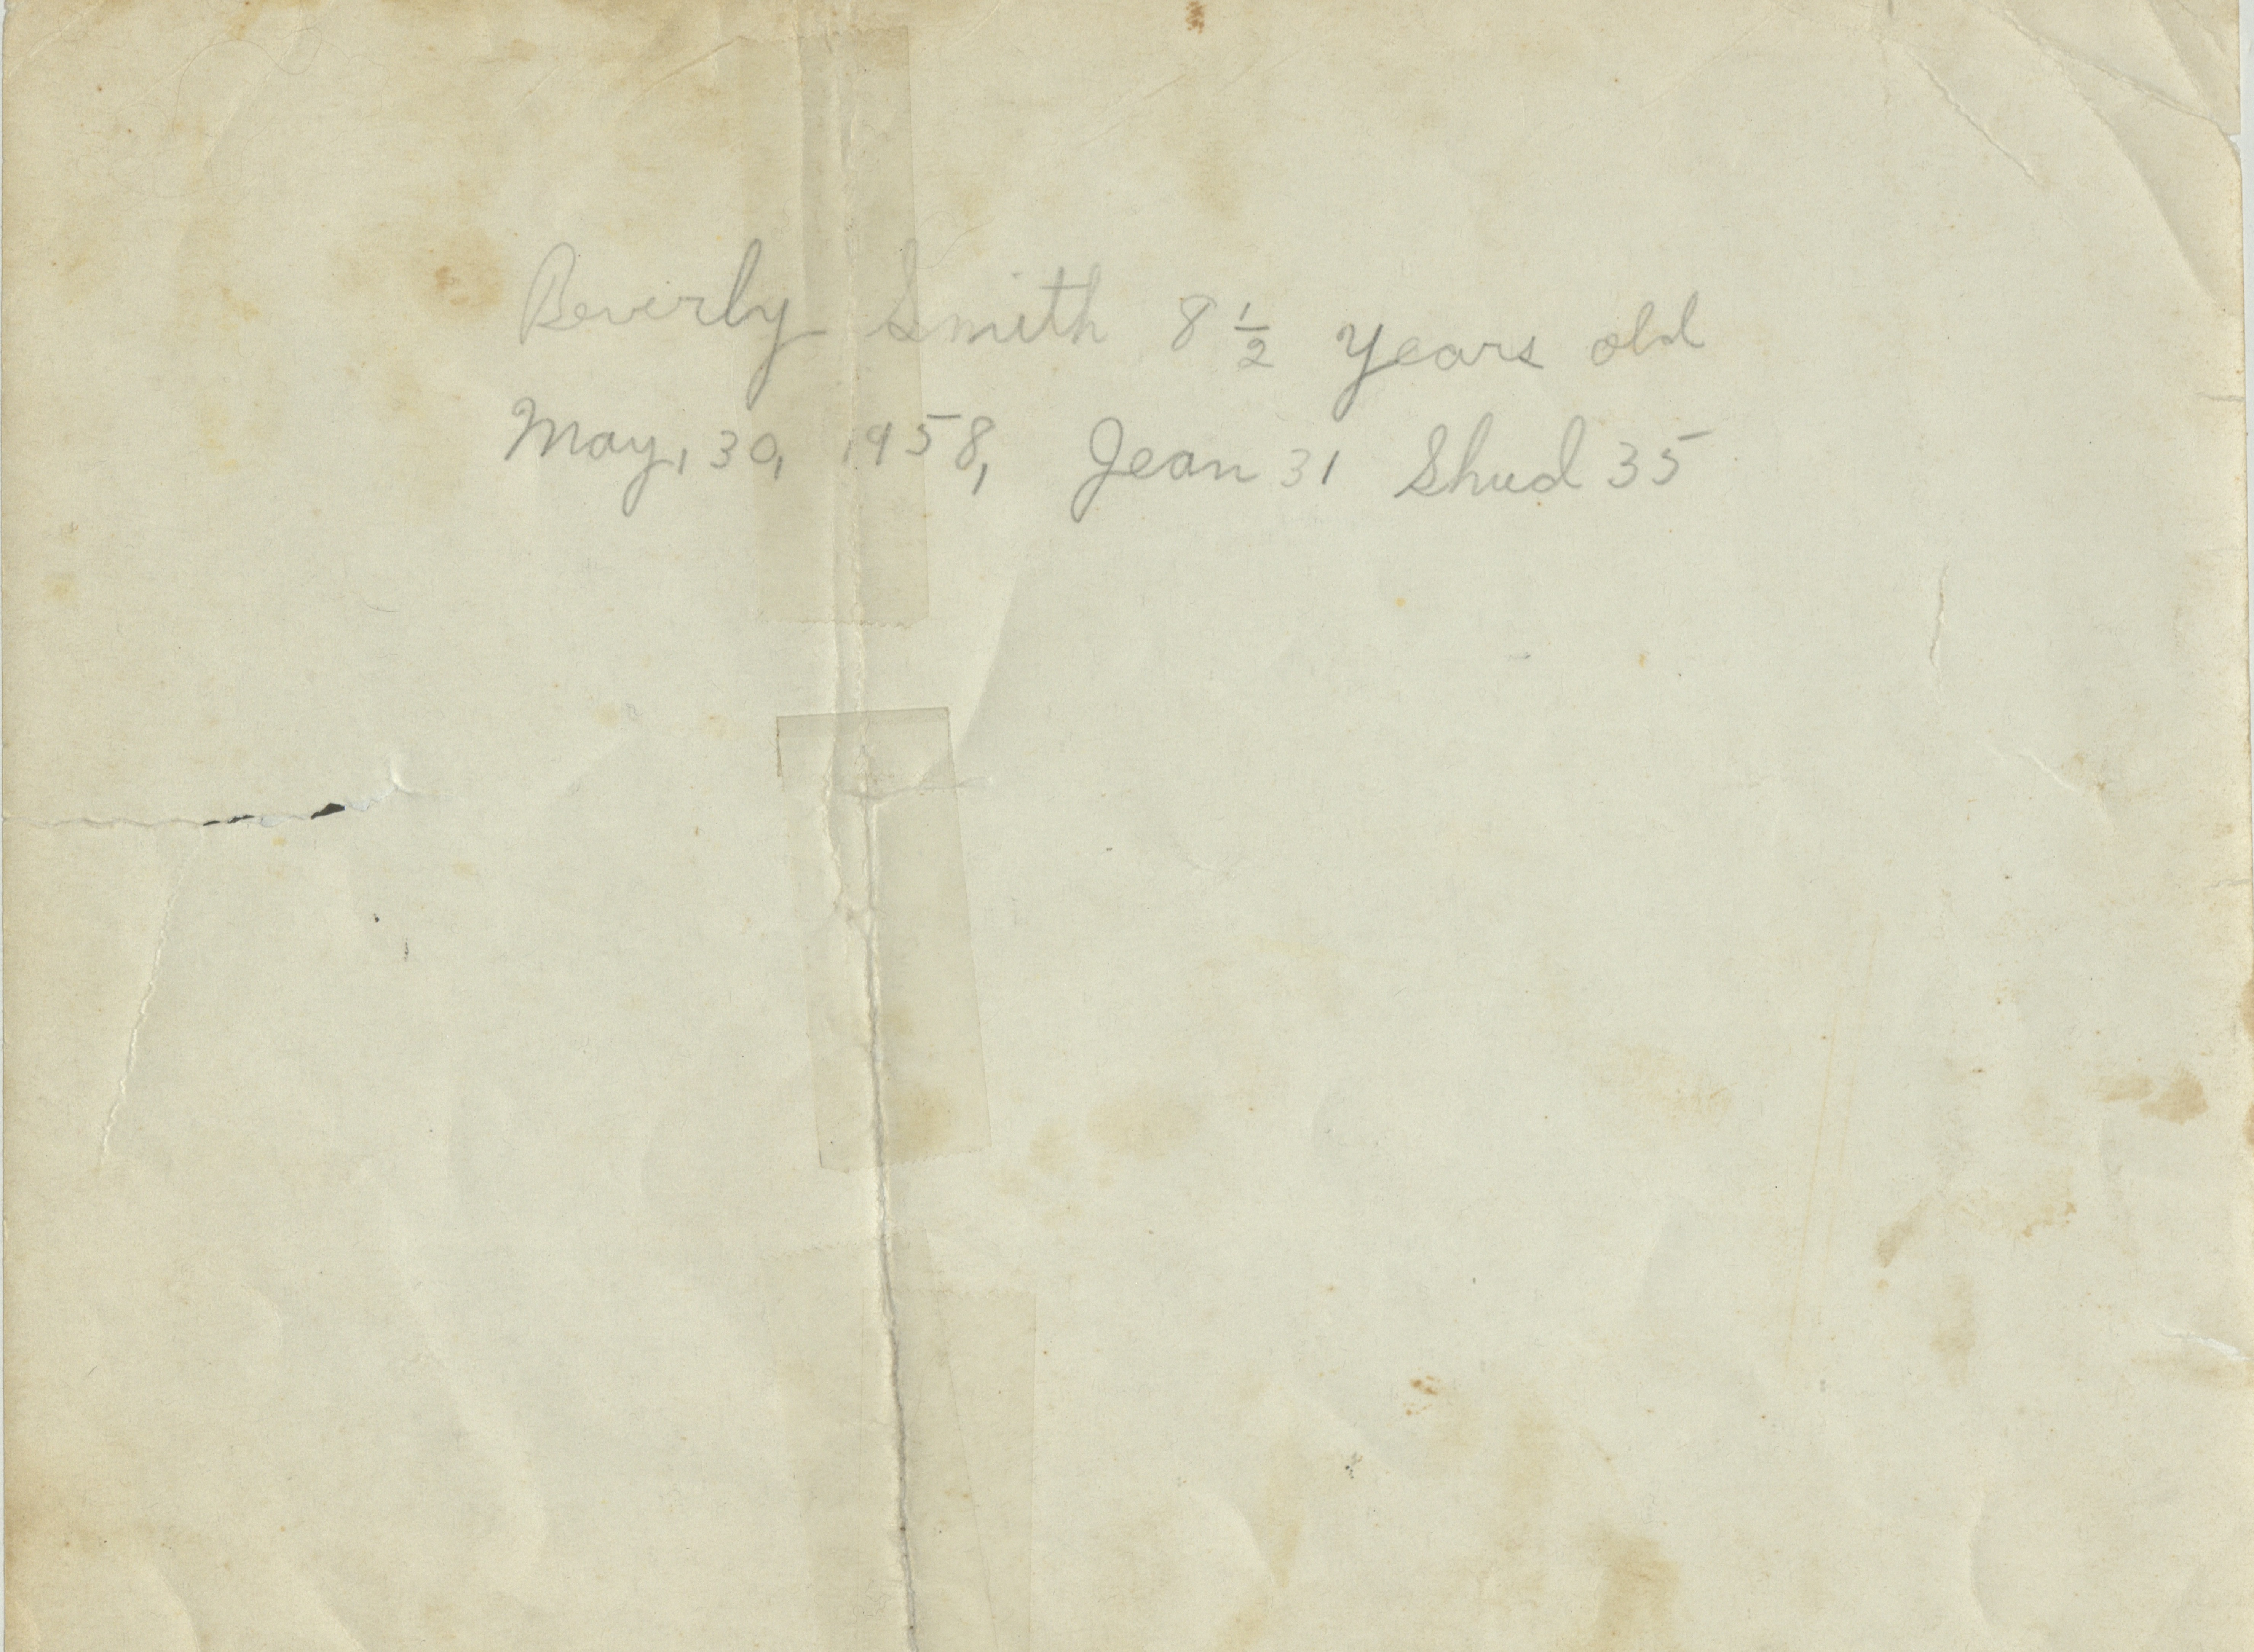 Beverly Smith 8 1/2 years old
May, 30, 1958, Jean 31 Shud 35